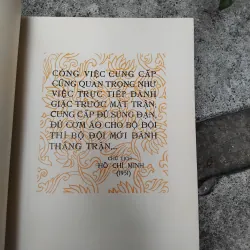 CÔNG VIỆC CUNG CẤP
CŨNG QUAN TRỌNG NHƯ
VIỆC TRỰC TIẾP ĐÁNH
GIẶC TRƯỚC MẶT TRẬN,
CUNG CẤP ĐỦ SÚNG ĐẠN,
ĐỦ CƠM ÁO CHO BỘ ĐỘI
THÌ BỘ ĐỘI MỚI ĐÁNH
THẮNG TRẬN,..
CHỦ TỊCH
HỒ CHÍ MINH
(1951)